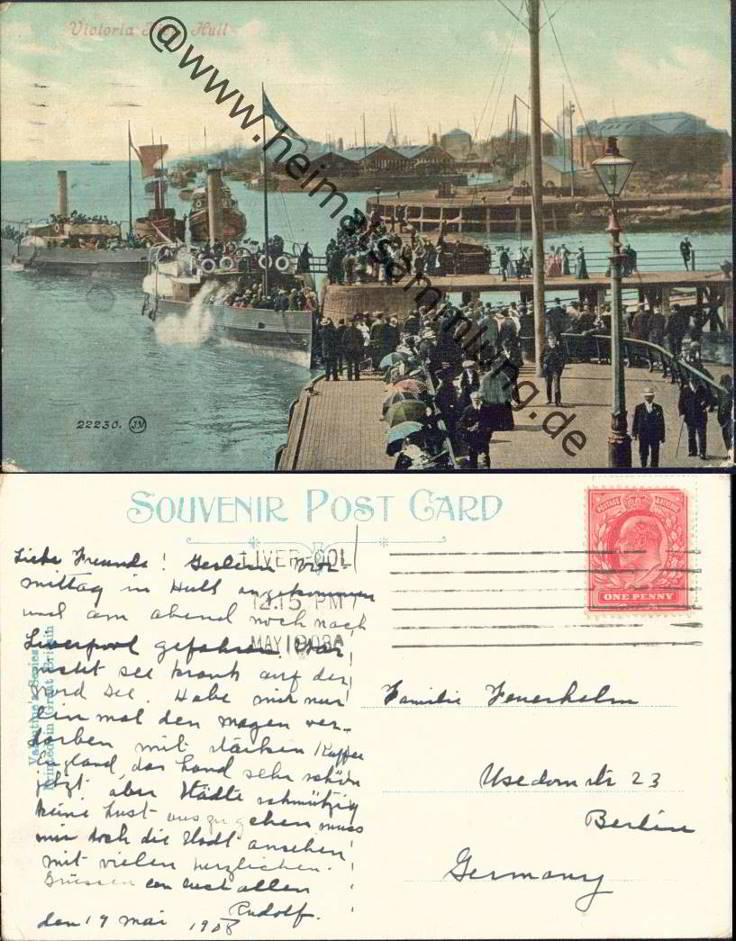 Victoria Pier, Hull
@www.heimatsammlung.de
22230. JV
SOUVENIR POST CARD
LIVERPOOL
12.15 PM
MAY 19 08
ONE PENNY
Valentine's Series
Printed in Great Britain
Liebe Freunde! Gestern Vor-
mittag in Hull angekommen
und am abend noch nach
Liverpool gefahren. War
nicht see krank auf der
Nord See. Habe mir nur
Ein mal den magen ver-
dorben mit starken Kaffee
England, das Land sehr schön
jetzt aber Städte schmützig
keine Lust auszugehen muss
mir doch die Stadt ansehen
mit vielen herzlichen
Grüssen an euch allen
Rudolf.
den 19 mai 1908
Familie Feuerhelm
Usedom str 23
Berlin
Germany